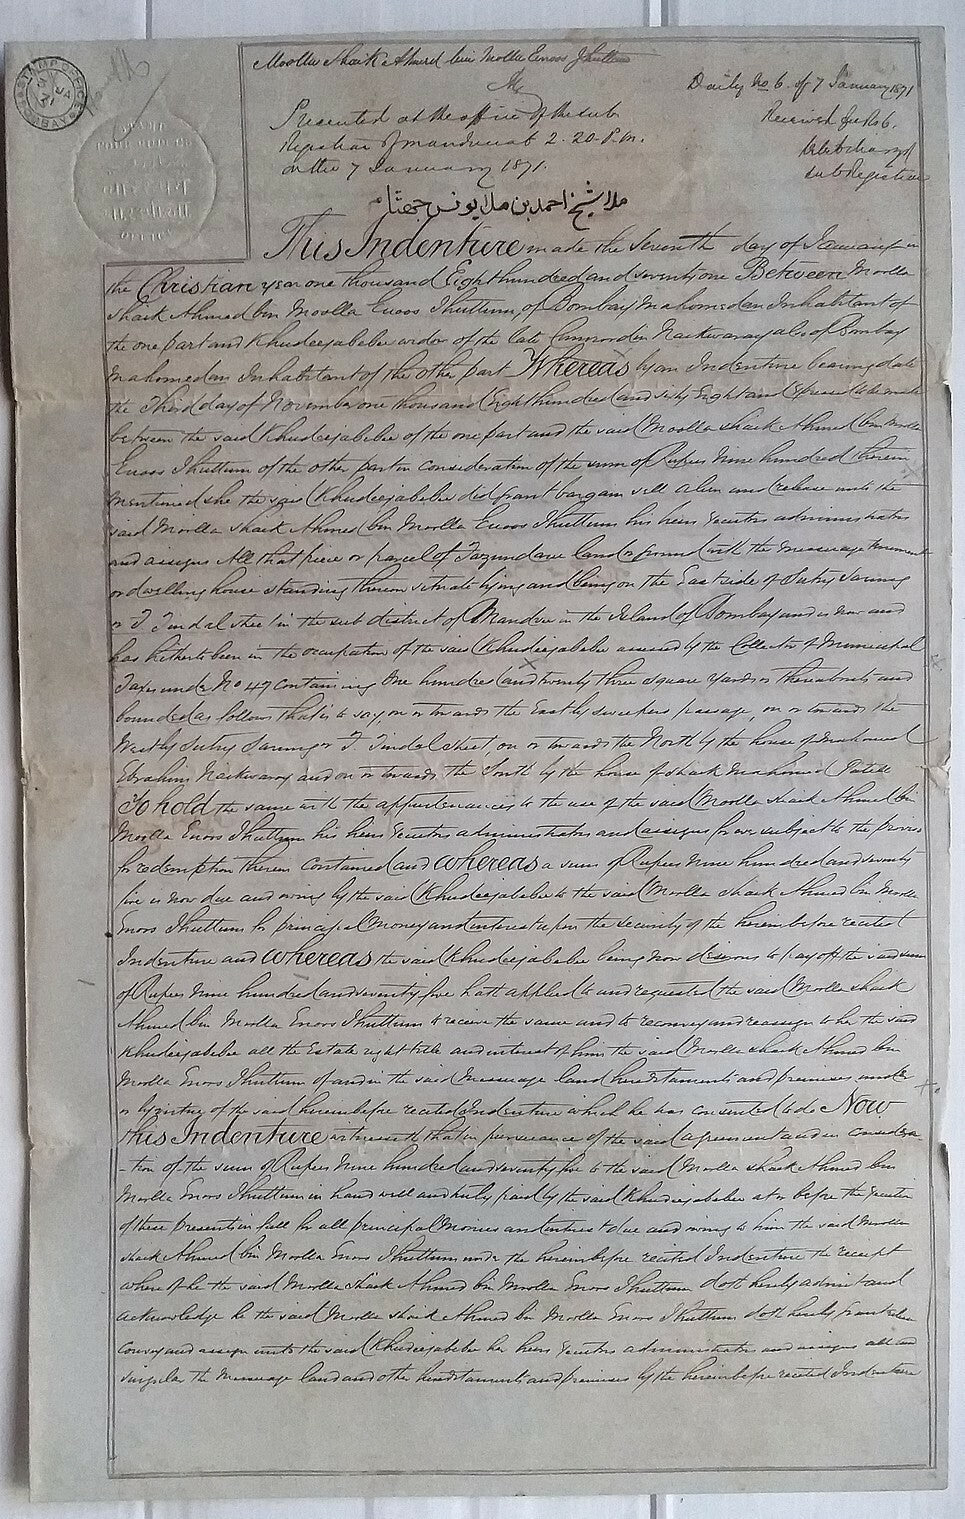 Moolla Shaik Ahmed bin Moolla Enoos Jhuttam
Daily No 6 of 7 January 1871
Presented at the office of the sub
Received fee Rs 6.
Registrar of Mandvie at 2.20 P.M.
on the 7 January 1871.
Sub Registrar
ملا شيخ احمد بن ملا يونس
This Indenture made the Seventh day of January in
the Christian year one thousand Eight hundred and seventy one Between Moolla
Shaik Ahmed bin Moolla Enoos Jhuttam, of Bombay Mahomedan Inhabitant of
the one part and Khudeejabebee widow of the late of Bombay
Mahomedan Inhabitant of the other part Whereas by an Indenture bearing date
the Third day of November one thousand Eight hundred and sixty Eight and Expressed to be made
between the said Khudeejabebee of the one part and the said Moolla Shaik Ahmed bin Moolla
Enoos Jhuttam of the other part in consideration of the sum of Rupees Nine hundred therein
mentioned she the said Khudeejabebee did grant bargain sell alien and release unto the
said Moolla Shaik Ahmed bin Moolla Enoos Jhuttam his heirs Executors administrators
and assigns All that piece or parcel of Fazundaree land or ground with the messuage tenement
or dwelling house standing thereon situate lying and being on the East side of
Tindal street in the sub district of Mandvie in the Island of Bombay and is now and
has hitherto been in the occupation of the said Khudeejabebee assessed by the Collector of Municipal
Taxes under No 47 containing One hundred and twenty three square yards or thereabouts and
bounded as follows that is to say, on or towards the East by sweepers passage, on or towards the
West by Tindal street, on or towards the North by the house of Mahomed
Ebrahim and on or towards the South by the house of Shaik Mahomed Patell
To hold the same with the appurtenances to the use of the said Moolla Shaik Ahmed bin
Moolla Enoos Jhuttam his heirs Executors administrators and assigns for ever subject to the proviso
for redemption therein contained and Whereas a sum of Rupees Nine hundred and seventy
five is now due and owing by the said Khudeejabebee to the said Moolla Shaik Ahmed bin Moolla
Enoos Jhuttam for principal Money and interest upon the security of the hereinbefore recited
Indenture and Whereas the said Khudeejabebee being now desirous to pay off the said sum
of Rupees Nine hundred and seventy five hath applied to and requested the said Moolla Shaik
Ahmed bin Moolla Enoos Jhuttam to receive the same and to reconvey and reassign to her the said
Khudeejabebee all the Estate right title and interest of him the said Moolla Shaik Ahmed bin
Moolla Enoos Jhuttam of and in the said Messuage land hereditaments and premises under
or by virtue of the said hereinbefore recited Indenture which he has consented to do Now
this Indenture witnesseth that in pursuance of the said agreement and in considera
-tion of the sum of Rupees Nine hundred and seventy five to the said Moolla Shaik Ahmed bin
Moolla Enoos Jhuttam in hand well and truly paid by the said Khudeejabebee at or before the Execution
of these presents in full for all principal Monies and interest due and owing to him the said Moolla
Shaik Ahmed bin Moolla Enoos Jhuttam under the hereinbefore recited Indenture the receipt
whereof he the said Moolla Shaik Ahmed bin Moolla Enoos Jhuttam doth hereby admit and
acknowledge he the said Moolla Shaik Ahmed bin Moolla Enoos Jhuttam doth hereby grant release
convey and assign unto the said Khudeejabebee her heirs Executors administrators and assigns all and
singular the Messuage land and other hereditaments and premises by the hereinbefore recited Indenture